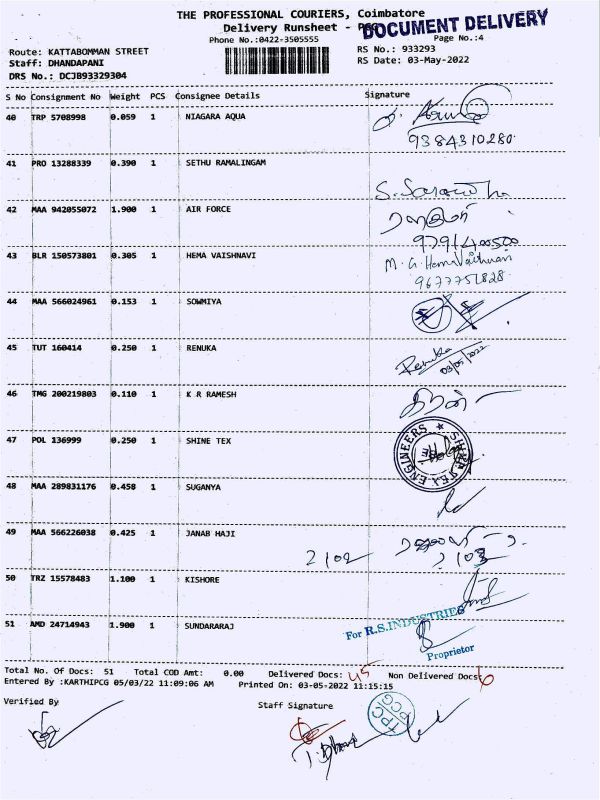 THE PROFESSIONAL COURIERS, Coimbatore
Delivery Runsheet -
DOCUMENT DELIVERY
Phone No.:0422-3505555
Page No.:4
Route: KATTABOMMAN STREET
RS No.: 933293
Staff: DHANDAPANI
RS Date: 03-May-2022
DRS No.: DCJB93329304
S No Consignment No Weight PCS Consignee Details Signature
40 TRP 5708998 0.059 1 NIAGARA AQUA
9384310280
41 PRO 13288339 0.390 1 SETHU RAMALINGAM
42 MAA 942055072 1.900 1 AIR FORCE
43 BLR 150573801 0.305 1 HEMA VAISHNAVI
M. G. Hema Vaishnavi
9677751828
44 MAA 566024961 0.153 1 SOWMIYA
45 TUT 160414 0.250 1 RENUKA
Renuka
03/05/2022
46 TMG 200219803 0.110 1 K R RAMESH
47 POL 136999 0.250 1 SHINE TEX
48 MAA 289831176 0.458 1 SUGANYA
49 MAA 566226038 0.425 1 JANAB HAJI
2102
2103
50 TRZ 15578483 1.100 1 KISHORE
51 AMD 24714943 1.900 1 SUNDARARAJ
For R.S.INDUSTRIES
Proprietor
Total No. Of Docs: 51 Total COD Amt: 0.00 Delivered Docs: 45 Non Delivered Docs: 6
Entered By :KARTHIPCG 05/03/22 11:09:06 AM Printed On: 03-05-2022 11:15:15
Verified By
Staff Signature